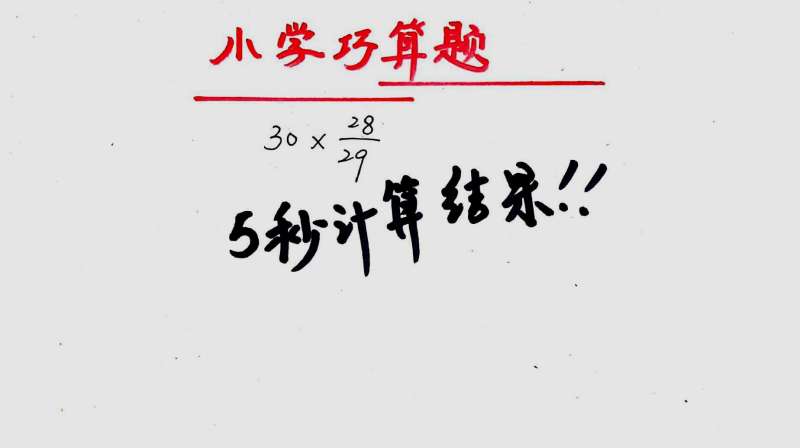 小学巧算题
30 × 28/29
5秒计算结果!!